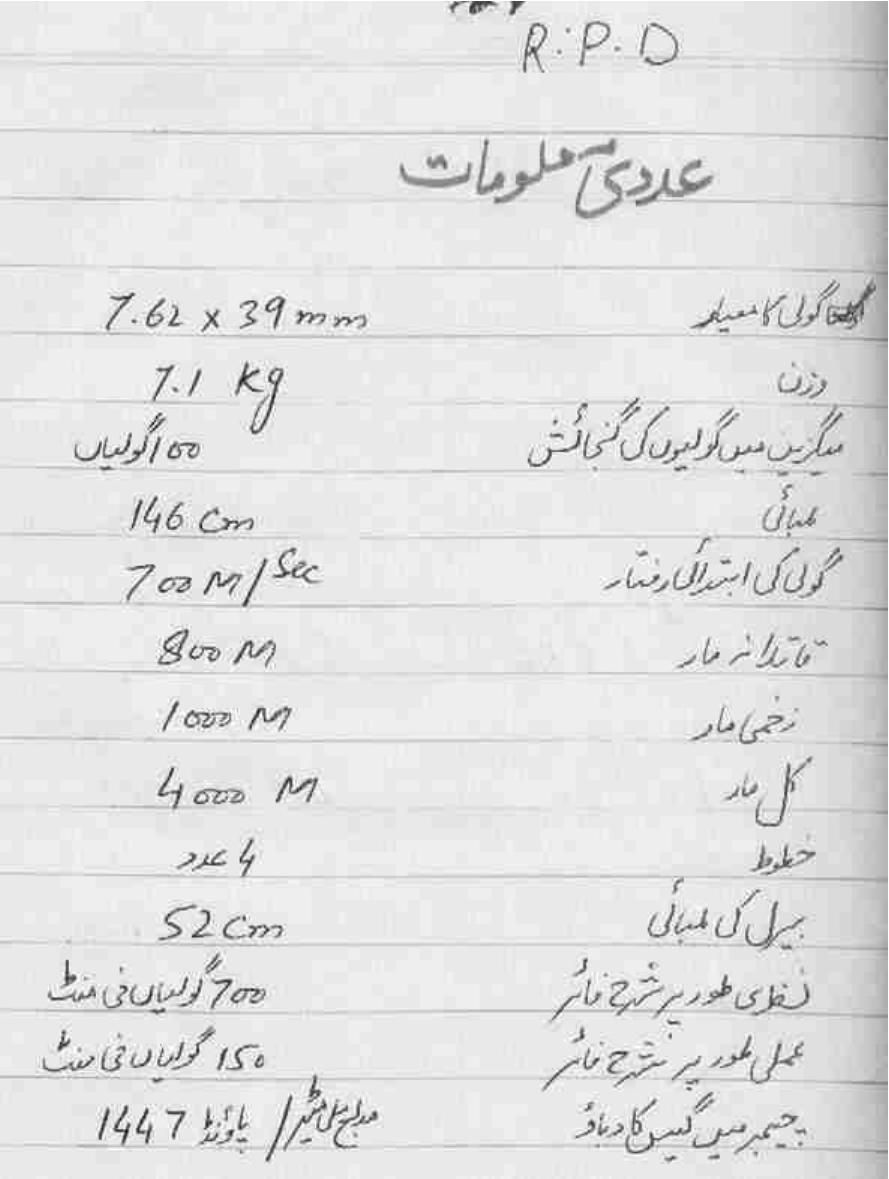 R.P.D
عددی معلومات
گولی کا معیار 7.62 x 39 mm
وزن 7.1 Kg
میگزین میں گولیوں کی گنجائش 100 گولیاں
لمبائی 146 Cm
گولی کی ابتدائی رفتار 700 M/Sec
قاتلانہ مار 800 M
زخمی مار 1000 M
کل مار 4000 M
خطوط 4 عدد
بیرل کی لمبائی 52 Cm
نظری طور پر شرح فائر 700 گولیاں فی منٹ
عملی طور پر شرح فائر 150 گولیاں فی منٹ
چیمبر میں گیس کا دباؤ 1447 پاؤنڈ / مربع ملی میٹر